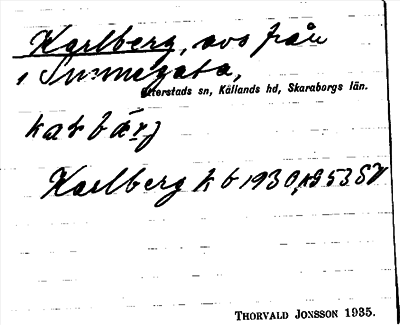 Karlberg, avs från
i Sunnegata,
Otterstads sn, Kållands hd, Skaraborgs län.
kabbärj
Karlberg kb 1930, 
THORVALD JONSSON 1935.